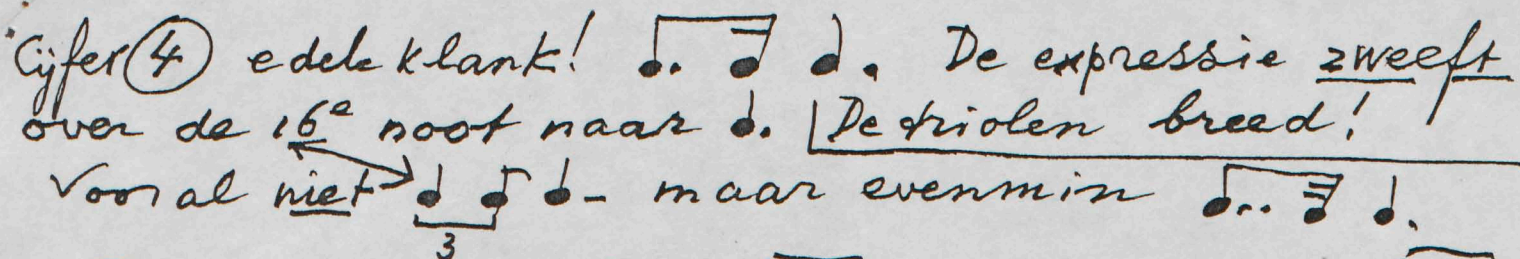 Cijfer 4 edele klank! De expressie zweeft
over de 16e noot naar De triolen breed!
Vooral niet maar evenmin
3